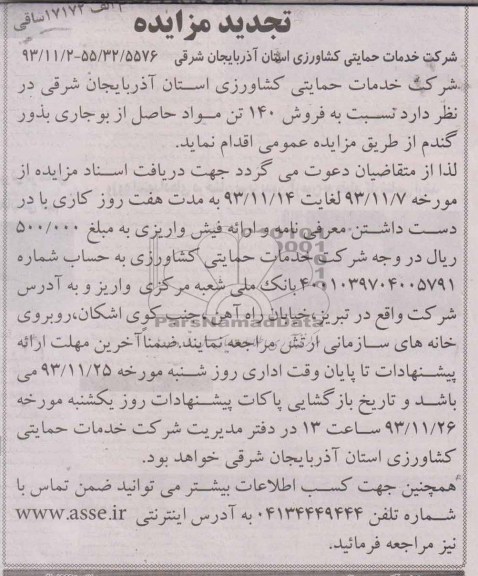 م الف ۱۷۱۷۲ ساقی
تجدید مزایده
شرکت خدمات حمایتی کشاورزی استان آذربایجان شرقی ۵۵/۳۲/۵۵۷۶-۹۳/۱۱/۲
شرکت خدمات حمایتی کشاورزی استان آذربایجان شرقی در
نظر دارد نسبت به فروش ۱۴۰ تن مواد حاصل از بوجاری بذور
گندم از طریق مزایده عمومی اقدام نماید.
لذا از متقاضیان دعوت می گردد جهت دریافت اسناد مزایده از
مورخه ۹۳/۱۱/۷ لغایت ۹۳/۱۱/۱۴ به مدت هفت روز کاری با در
دست داشتن معرفی نامه و ارائه فیش واریزی به مبلغ ۵۰۰/۰۰۰
ریال در وجه شرکت خدمات حمایتی کشاورزی به حساب شماره
۴۰۰۱۰۳۹۷۰۴۰۰۵۷۹۱ بانک ملی شعبه مرکزی واریز و به آدرس
شرکت واقع در تبریز،خیابان راه آهن ،جنب کوی اشکان،روبروی
خانه های سازمانی ارتش مراجعه نمایند.ضمناً آخرین مهلت ارائه
پیشنهادات تا پایان وقت اداری روز شنبه مورخه ۹۳/۱۱/۲۵ می
باشد و تاریخ بازگشایی پاکات پیشنهادات روز یکشنبه مورخه
۹۳/۱۱/۲۶ ساعت ۱۳ در دفتر مدیریت شرکت خدمات حمایتی
کشاورزی استان آذربایجان شرقی خواهد بود.
همچنین جهت کسب اطلاعات بیشتر می توانید ضمن تماس با
شماره تلفن ۰۴۱۳۴۴۴۹۴۴۴ به آدرس اینترنتی www.asse.ir
نیز مراجعه فرمائید.
ParsNamadData